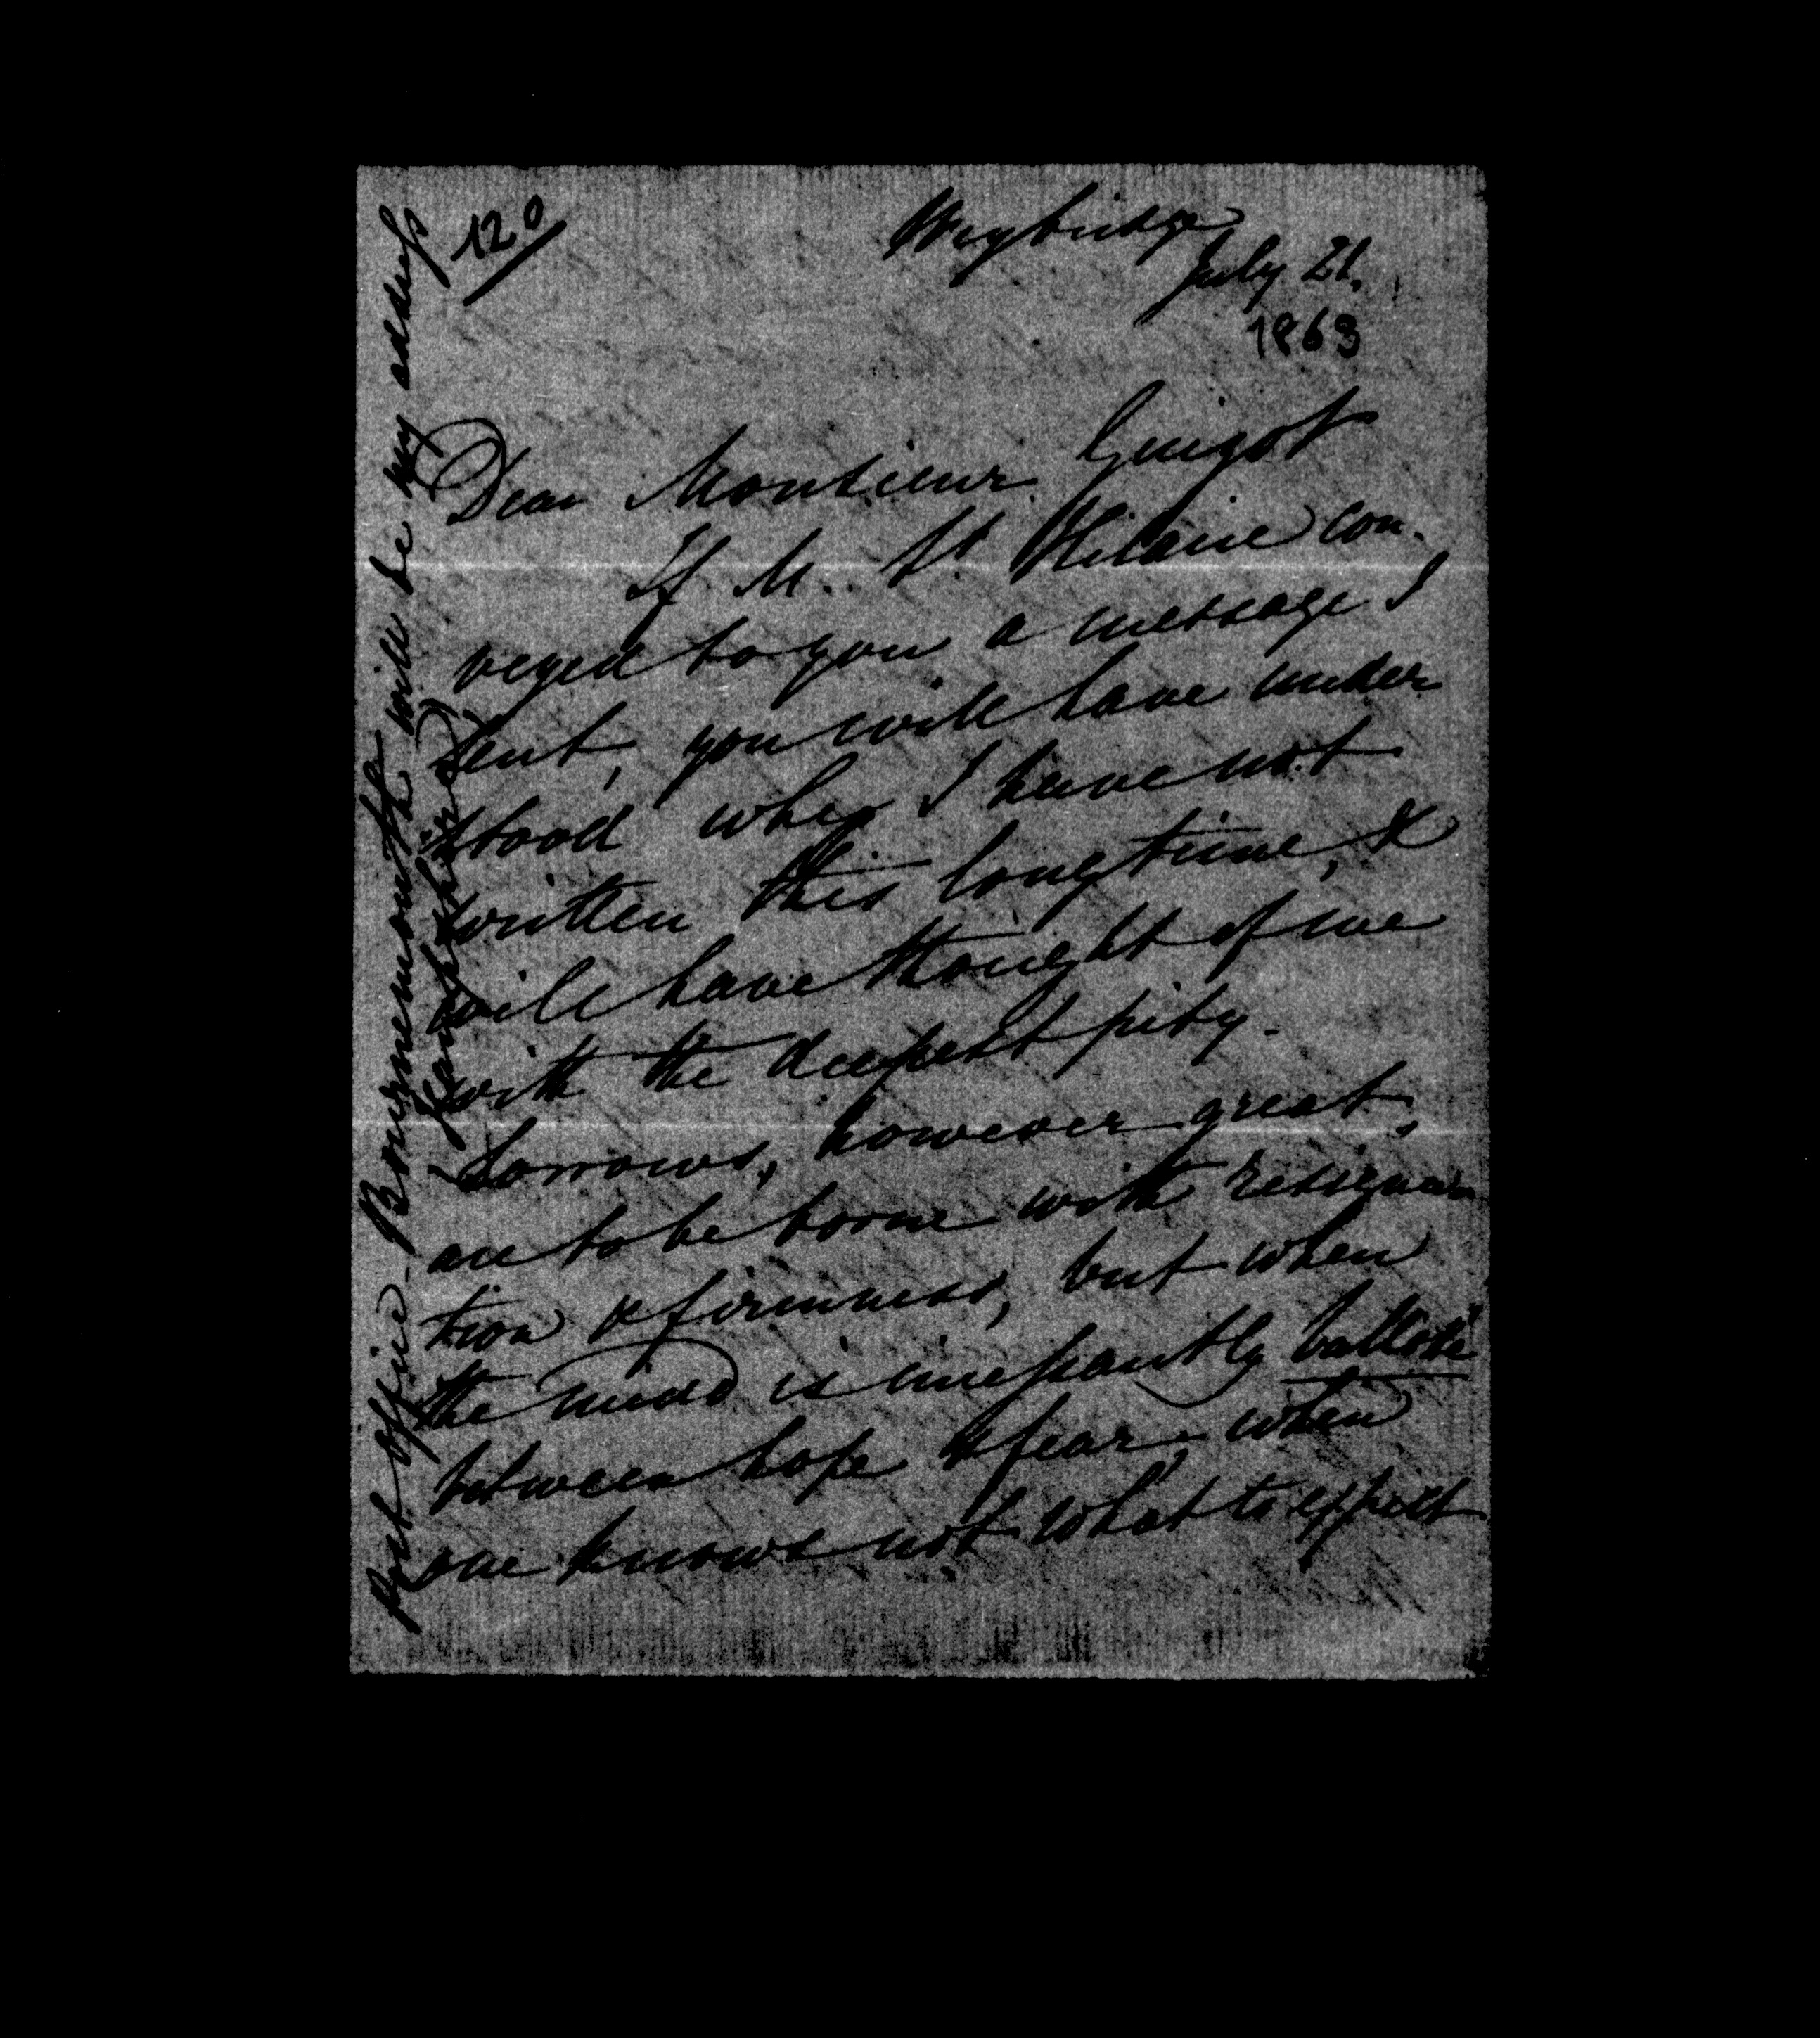 120
Weybridge
July 21.
1863
Dear Monsieur Guizot
If M. St. Hilaire con-
veyed to you a message I
sent, you will have under
stood why I have not
written this long time, &
will have thought of me
with the deepest pity.
Sorrows, however great,
are to be borne with resigna
tion & firmness, but when
the mind is incessantly ballotté
between hope & fear, when
one knows not what to expect
Post Office Bournemouth will be my address